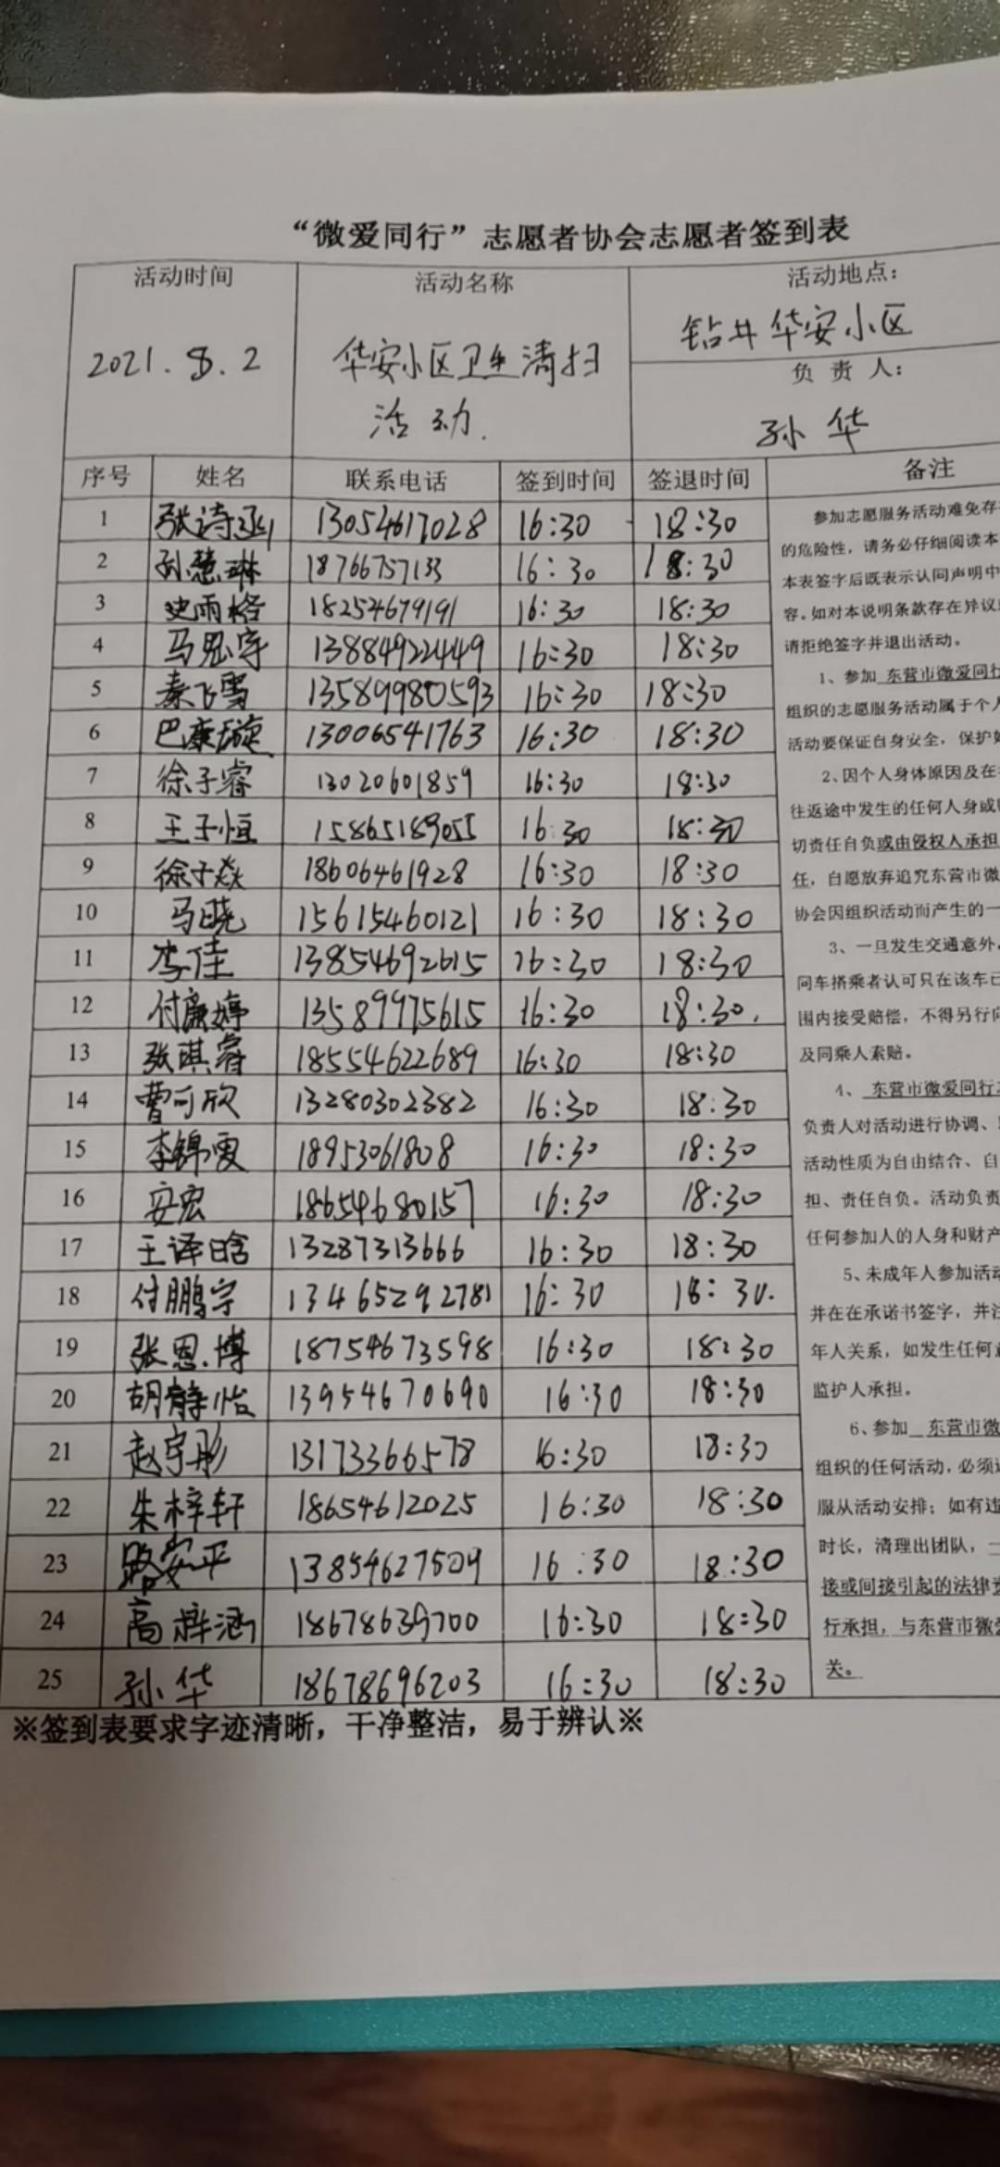 “微爱同行”志愿者协会志愿者签到表
活动时间 活动名称 活动地点：
2021.8.2 华安小区卫生清扫活动. 钻井华安小区
负责人：
孙华
序号 姓名 联系电话 签到时间 签退时间 备注
1 张诗涵 13054617028 16:30 18:30
2 孙慧琳 18766757133 16:30 18:30
3 史雨格 18254679191 16:30 18:30
4 马思宇 13884922449 16:30 18:30
5 秦飞雪 13589980593 16:30 18:30
6 巴康璇 13006541763 16:30 18:30
7 徐子睿 13020601859 16:30 18:30
8 王子恒 15865189055 16:30 18:30
9 徐子焱 18606461928 16:30 18:30
10 马晓 15615460121 16:30 18:30
11 李佳 13854692615 16:30 18:30
12 付廉婷 13589975615 16:30 18:30.
13 张琪睿 18554622689 16:30 18:30
14 曹可欣 13280302382 16:30 18:30
15 李锦雯 18953061808 16:30 18:30
16 安宏 18654680157 16:30 18:30
17 王译晗 13287313666 16:30 18:30
18 付鹏宇 13465292781 16:30 18:30.
19 张恩博 18754673598 16:30 18:30
20 胡静怡 13954670690 16:30 18:30
21 赵宇彤 13173366578 16:30 18:30
22 朱梓轩 18654612025 16:30 18:30
23 路安平 13854627509 16:30 18:30
24 高梓涵 18678639700 16:30 18:30
25 孙华 18678696203 16:30 18:30
参加志愿服务活动难免存
的危险性，请务必仔细阅读本
本表签字后既表示认同声明中
容。如对本说明条款存在异议
请拒绝签字并退出活动。
1、参加 东营市微爱同行
组织的志愿服务活动属于个人
活动要保证自身安全，保护
2、因个人身体原因及在
往返途中发生的任何人身或
切责任自负或由侵权人承担
任，自愿放弃追究东营市微
协会因组织活动而产生的一
3、一旦发生交通意外，
同车搭乘者认可只在该车已
围内接受赔偿，不得另行向
及同乘人索赔。
4、 东营市微爱同行
负责人对活动进行协调、
活动性质为自由结合、自
担、责任自负。活动负责
任何参加人的人身和财产
5、未成年人参加活动
并在在承诺书签字，并注
年人关系，如发生任何
监护人承担。
6、参加 东营市微
组织的任何活动，必须
服从活动安排；如有违
时长，清理出团队，一
接或间接引起的法律责
行承担，与东营市微爱
关。
※签到表要求字迹清晰，干净整洁，易于辨认※